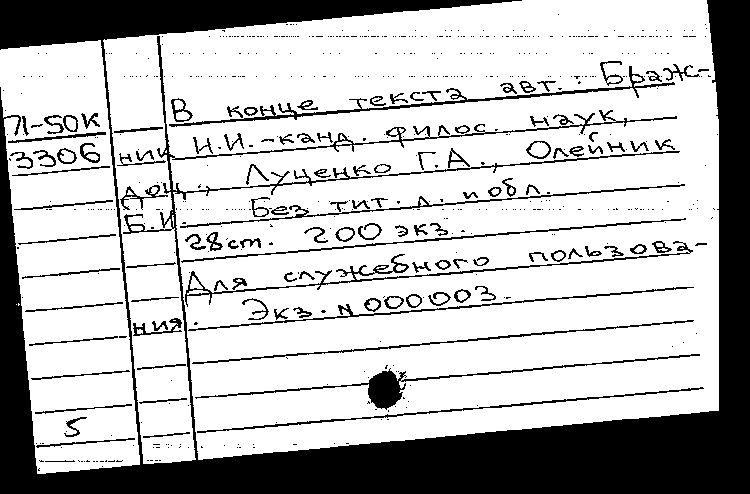 В конце текста авт.: Браж-
Л-50К
3306
ник Н.И.-канд. филос. наук,
доц., Луценко Г.А., Олейник
Б.И. Без тит. л. и обл.
28 ст. 200 экз.
Для служебного пользова-
ния. Экз. N 000003.
5